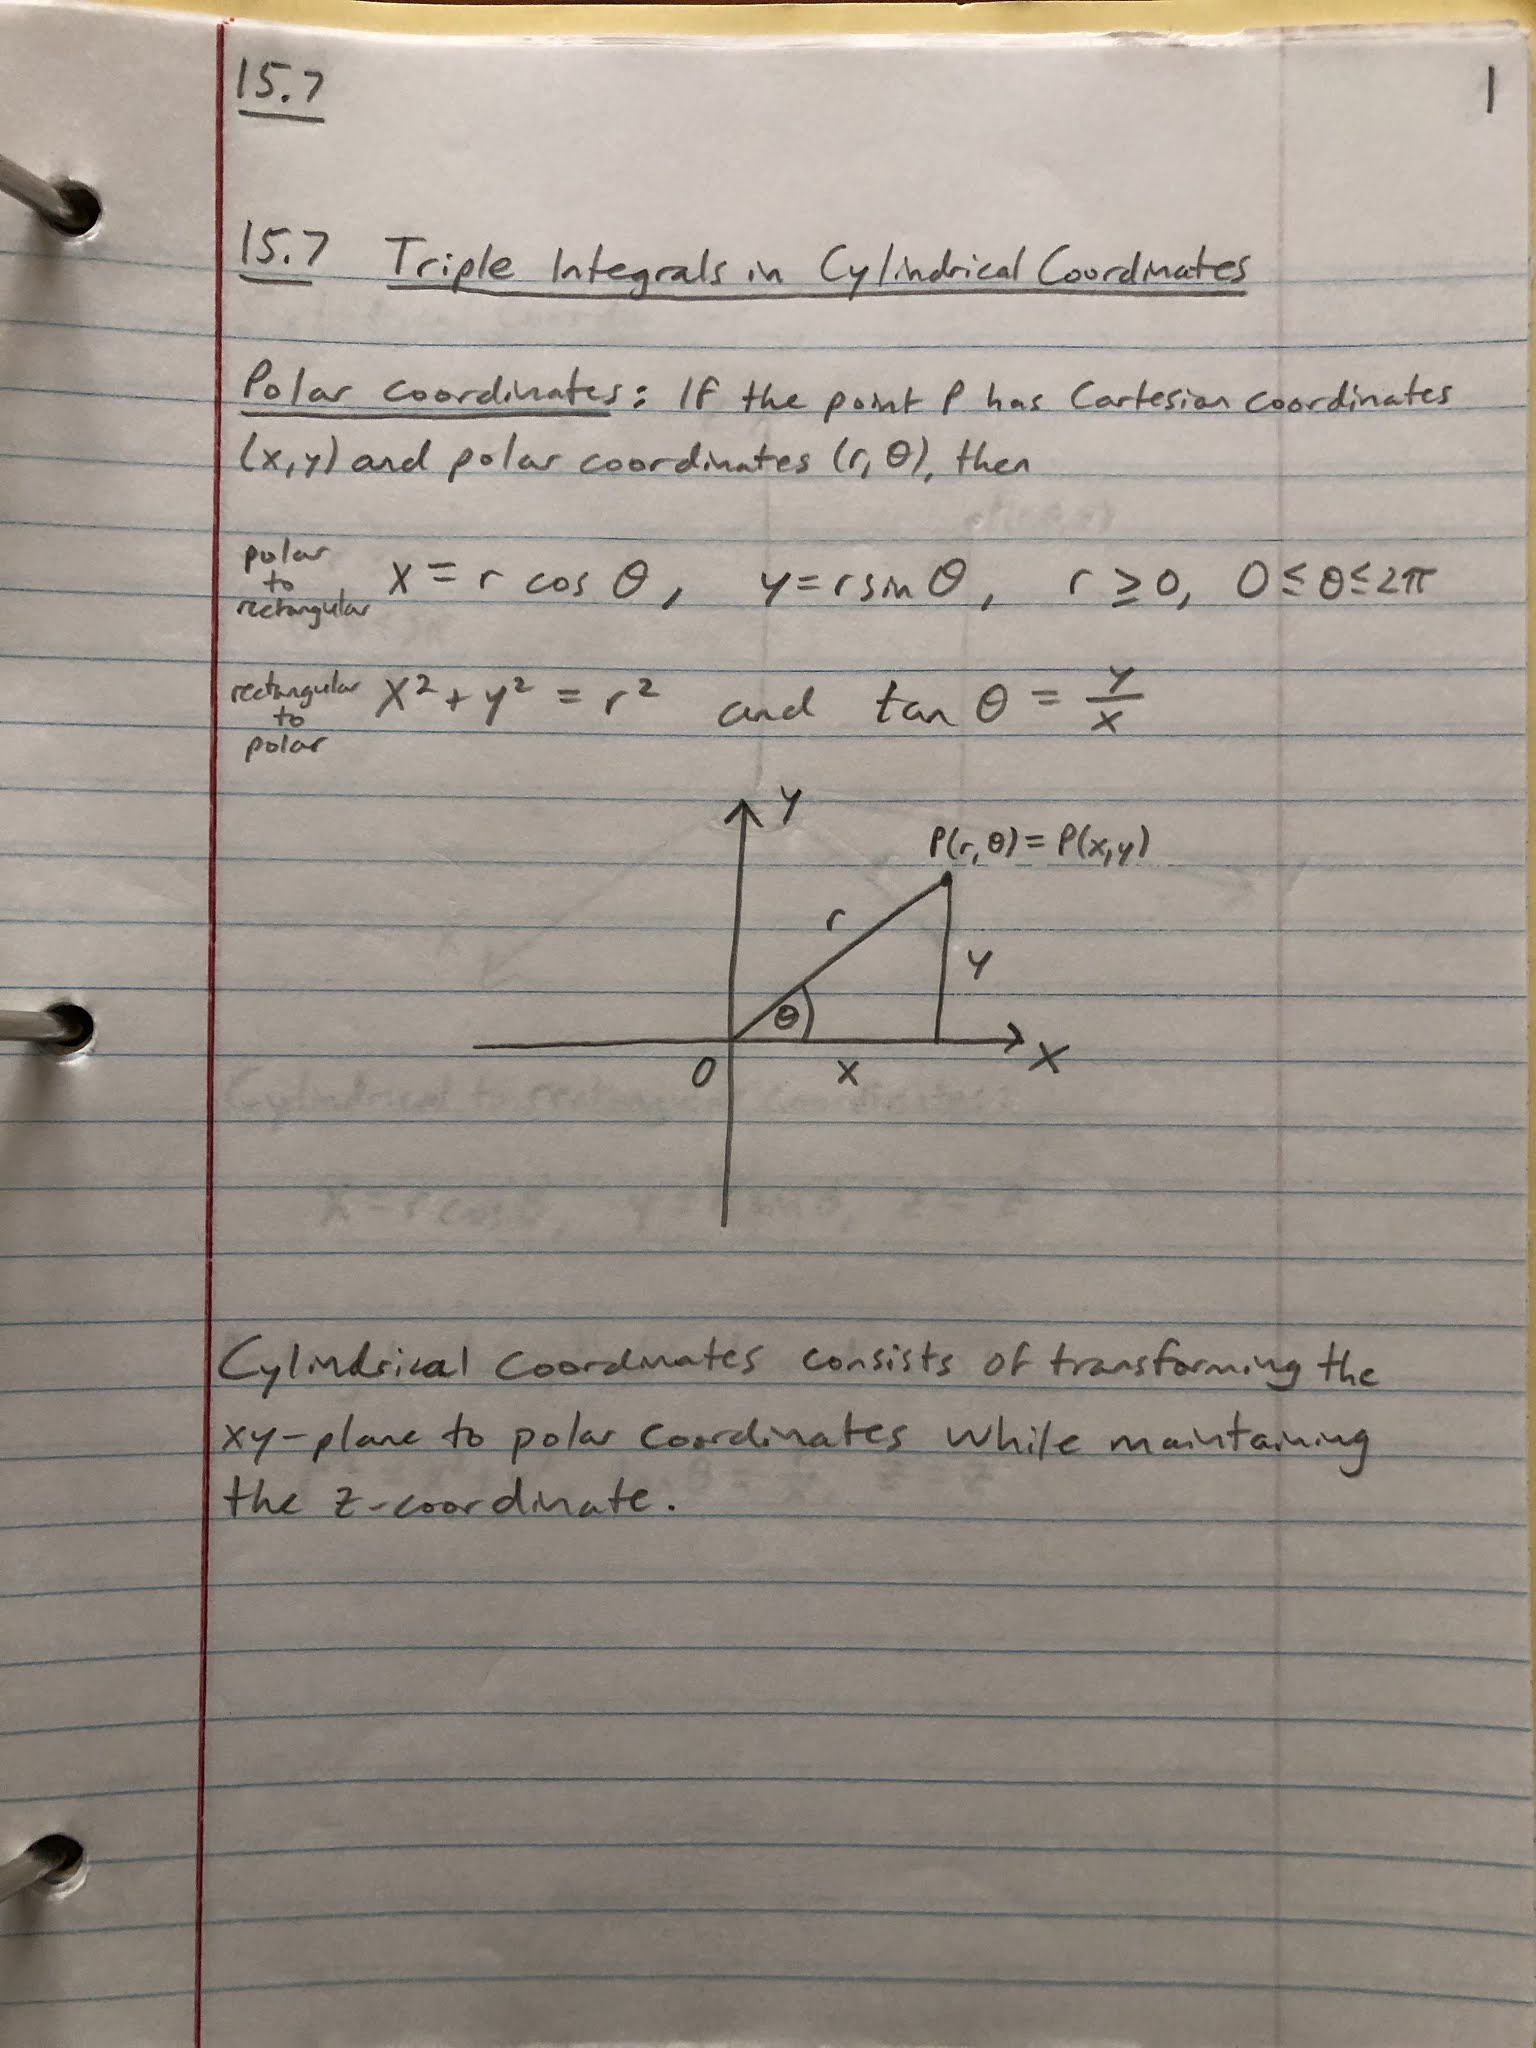 15.7
1
15.7 Triple Integrals in Cylindrical Coordinates
Polar coordinates: If the point P has Cartesian coordinates
(x,y) and polar coordinates (r, θ), then
polar to rectangular x = r cos θ, y = r sin θ, r ≥ 0, 0 ≤ θ ≤ 2π
rectangular to polar x² + y² = r² and tan θ = y/x
y
P(r, θ) = P(x,y)
r
y
θ
0
x
x
Cylindrical to rectangular coordinates:
x = r cos θ, y = r sin θ, z = z
Cylindrical Coordinates consists of transforming the
xy-plane to polar coordinates while maintaining
the z-coordinate.